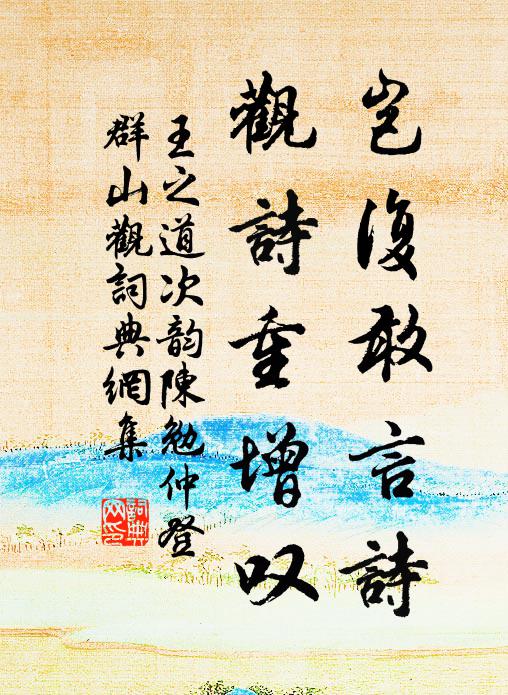 豈復敢言詩
觀詩重增叹
王之道次韵陳勉仲登
群山觀詞典網集